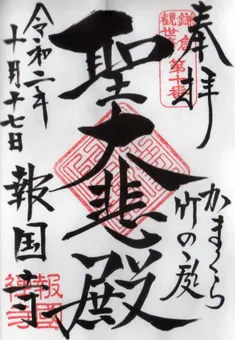 奉拝
鎌倉第十番
観世音
かまくら
竹の庭
聖大悲殿
令和二年
十月十七日
報国寺
報国
禅寺